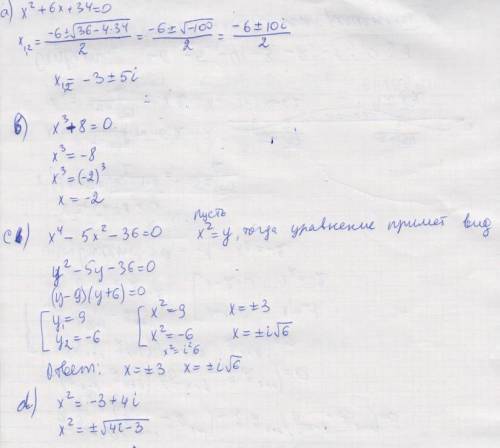 а) x² + 6x + 34 = 0
x₁,₂ = (-6 ± √(36 - 4·34))/2 = (-6 ± √(-100))/2 = (-6 ± 10i)/2
x₁,₂ = -3 ± 5i
b) x³ + 8 = 0
x³ = -8
x³ = (-2)³
x = -2
c) x⁴ - 5x² - 36 = 0 пусть x² = y, тогда уравнение примет вид
y² - 5y - 36 = 0
(y - 9)(y + 6) = 0
[ y₁ = 9 [ x² = 9 x = ±3
y₂ = -6 x² = -6 x = ±i√6
x² = i²6
Ответ: x = ±3 x = ±i√6
d) x² = -3 + 4i
x² = ±√(4i - 3)